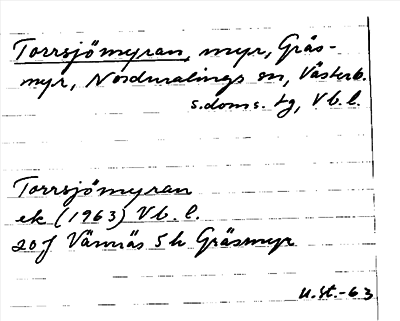 Torrsjömyran, myr, Gräs-
myr, Nordmalings sn, Västerb.
s. doms. tg, Vb. l.
Torrsjömyran
ek (1963) Vb. l.
20J Vännäs 5h Gräsmyr
U.St.-63